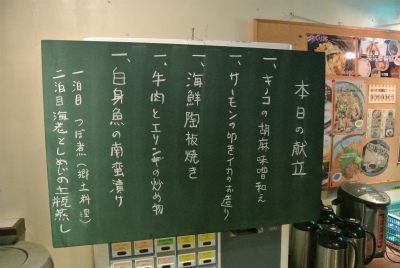 本日の献立
一、キノコの胡麻味噌和え
一、サーモンの叩きイカのお造り
一、海鮮陶板焼き
一、牛肉とエリンギの炒め物
一、白身魚の南蛮漬け
一泊目 つぼ煮(郷土料理)
二泊目 海老としめじの土瓶蒸し